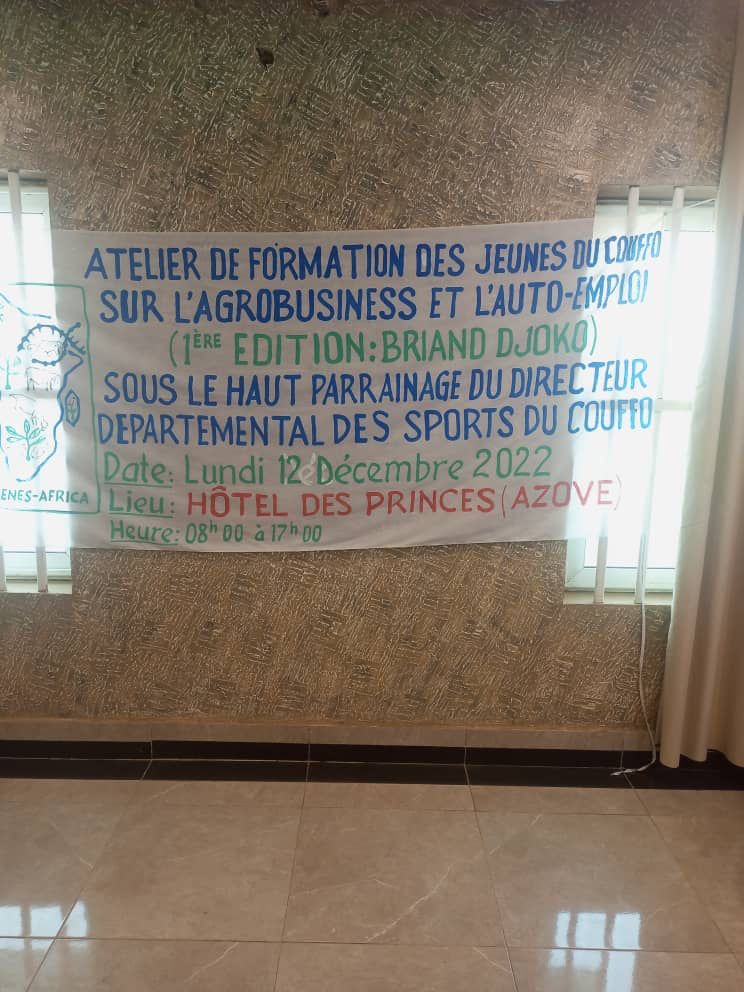 ATELIER DE FORMATION DES JEUNES DU COUFFO
SUR L'AGROBUSINESS ET L'AUTO-EMPLOI
(1ÈRE EDITION: BRIAND DJOKO)
SOUS LE HAUT PARRAINAGE DU DIRECTEUR
DEPARTEMENTAL DES SPORTS DU COUFFO
Date: Lundi 12 Décembre 2022
Lieu: HÔTEL DES PRINCES (AZOVE)
Heure: 08h 00 à 17h 00
ENES-AFRICA